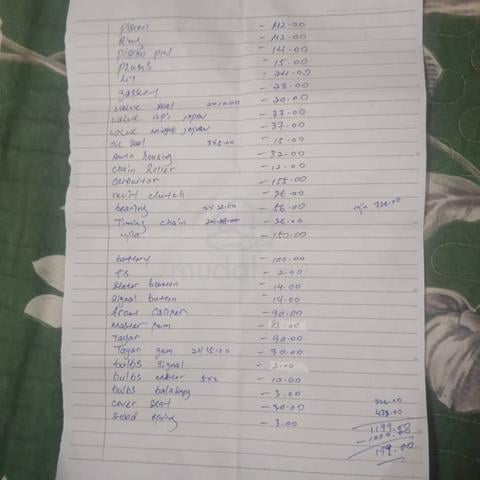 piston - 42.00
Ring - 42.00
piston pin - 14.00
plums - 15.00
- 24.00
gasket - 23.00
valve seal 2x10.00 - 20.00
valve japan - 37.00
valve japan - 37.00
oil seal 3x5.00 - 15.00
Auto housing - 32.00
chain Roller - 12.00
carburtor - 155.00
clutch - 26.00
bearing 2x28.00 - 56.00 726.00
Timing chain - 26.00
upa - 150.00
battery - 100.00
- 2.00
stater button - 14.00
signal button - 14.00
front caliper - 90.00
Master pam - 85.00
Tayar - 90.00
Tayar 2x15.00 - 30.00
bulbs signal - 2.00
bulbs 5x2 - 10.00
bulbs balakang - 3.00
cover seat - 30.00
stand spring - 3.00
473.00
1199.00
- 1000.00
199.00
mudah